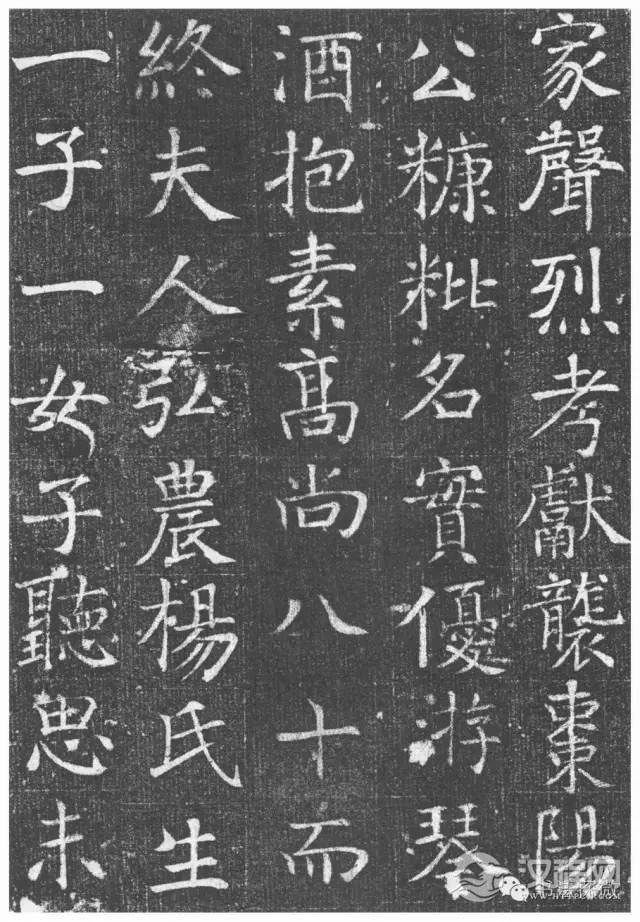 家聲烈考獻襲棗陽
公糠粃名實優游琴
酒抱素髙尚八十而
終夫人弘農楊氏生
一子一女子聽思未
汉程网